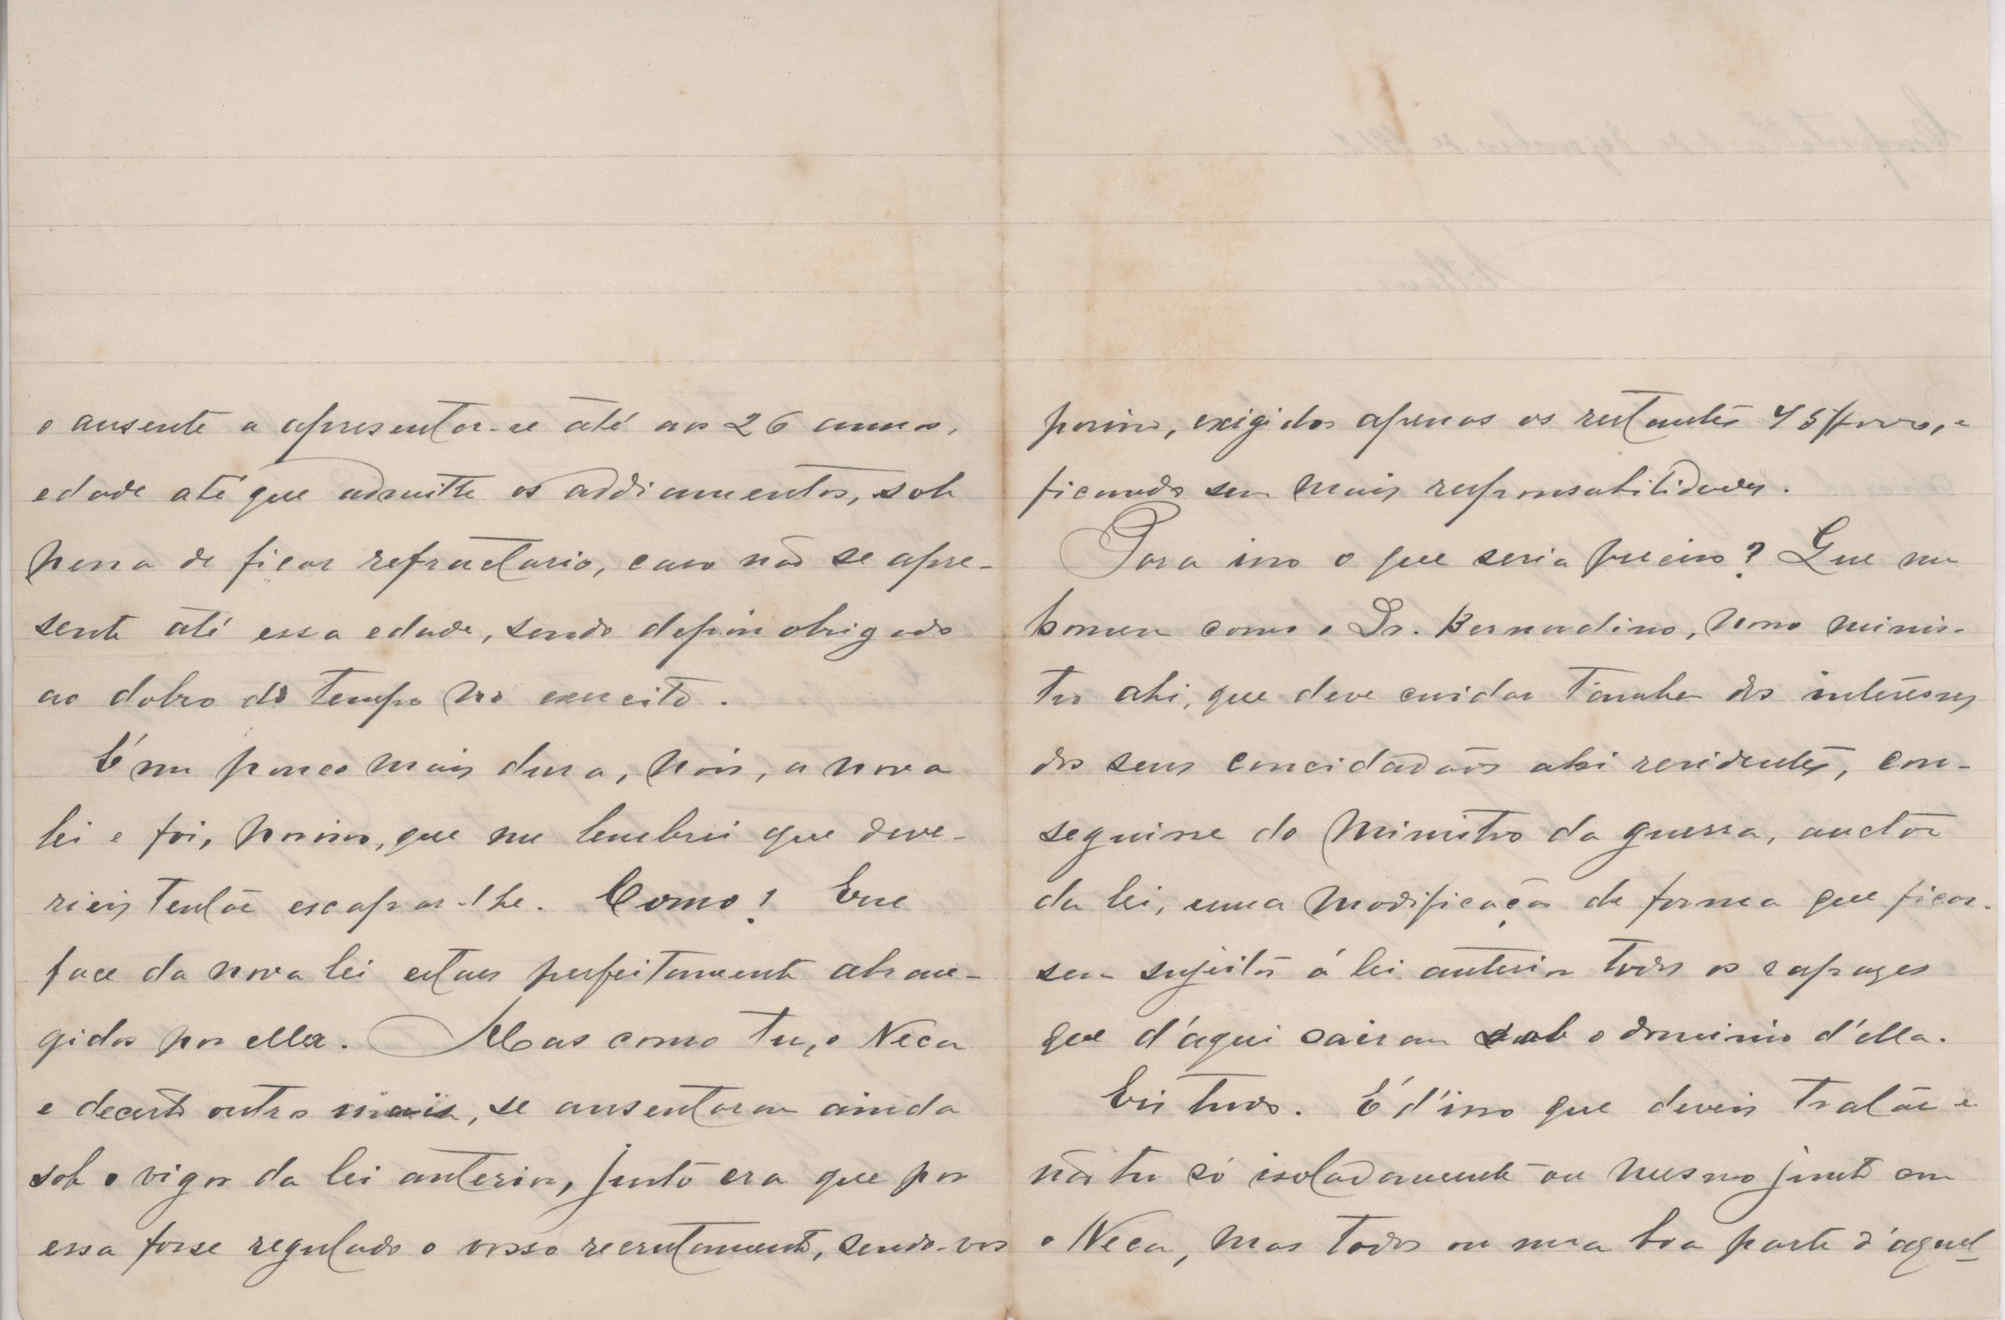 o ausente a apresentar-se até aos 26 annos,
edade até que admitte os addiamentos, sob
pena de ficar refractario, caso não se apre-
sente até essa edade, sendo depois obrigado
ao dobro do tempo no exercito.
É um pouco mais dura, pois, a nova
lei e foi, porisso, que me lembrei que deve-
rieis tentar escapar-lhe. Como? Em
face da nova lei estaes perfeitamente abran-
gidos por ella. Mas como tu, o Neca
e decerto outros mais, se ausentaram ainda
sob o vigor da lei anterior, justo era que por
essa fosse regulado o vosso recrutamento, sendo-vos
porisso, exigidos apenas os restantes e
ficando sem mais responsabilidades.
Para isso o que seria preciso? Que um
homem como o Dr. Bernardino, nosso minis-
tro ahi, que deve cuidar tambem dos interesses
dos seus concidadãos ahi residentes, con-
seguisse do Ministro da guerra, auctor
da lei, uma modificação de forma que ficas-
sem sujeitos á lei anterior todos os rapazes
que d'aqui sairam sob o dominio d'ella.
Eis tudo. É d'isso que deveis tratar e
não tu só isoladamente ou mesmo junto com
o Neca, mas todos ou uma boa parte d'aquel-